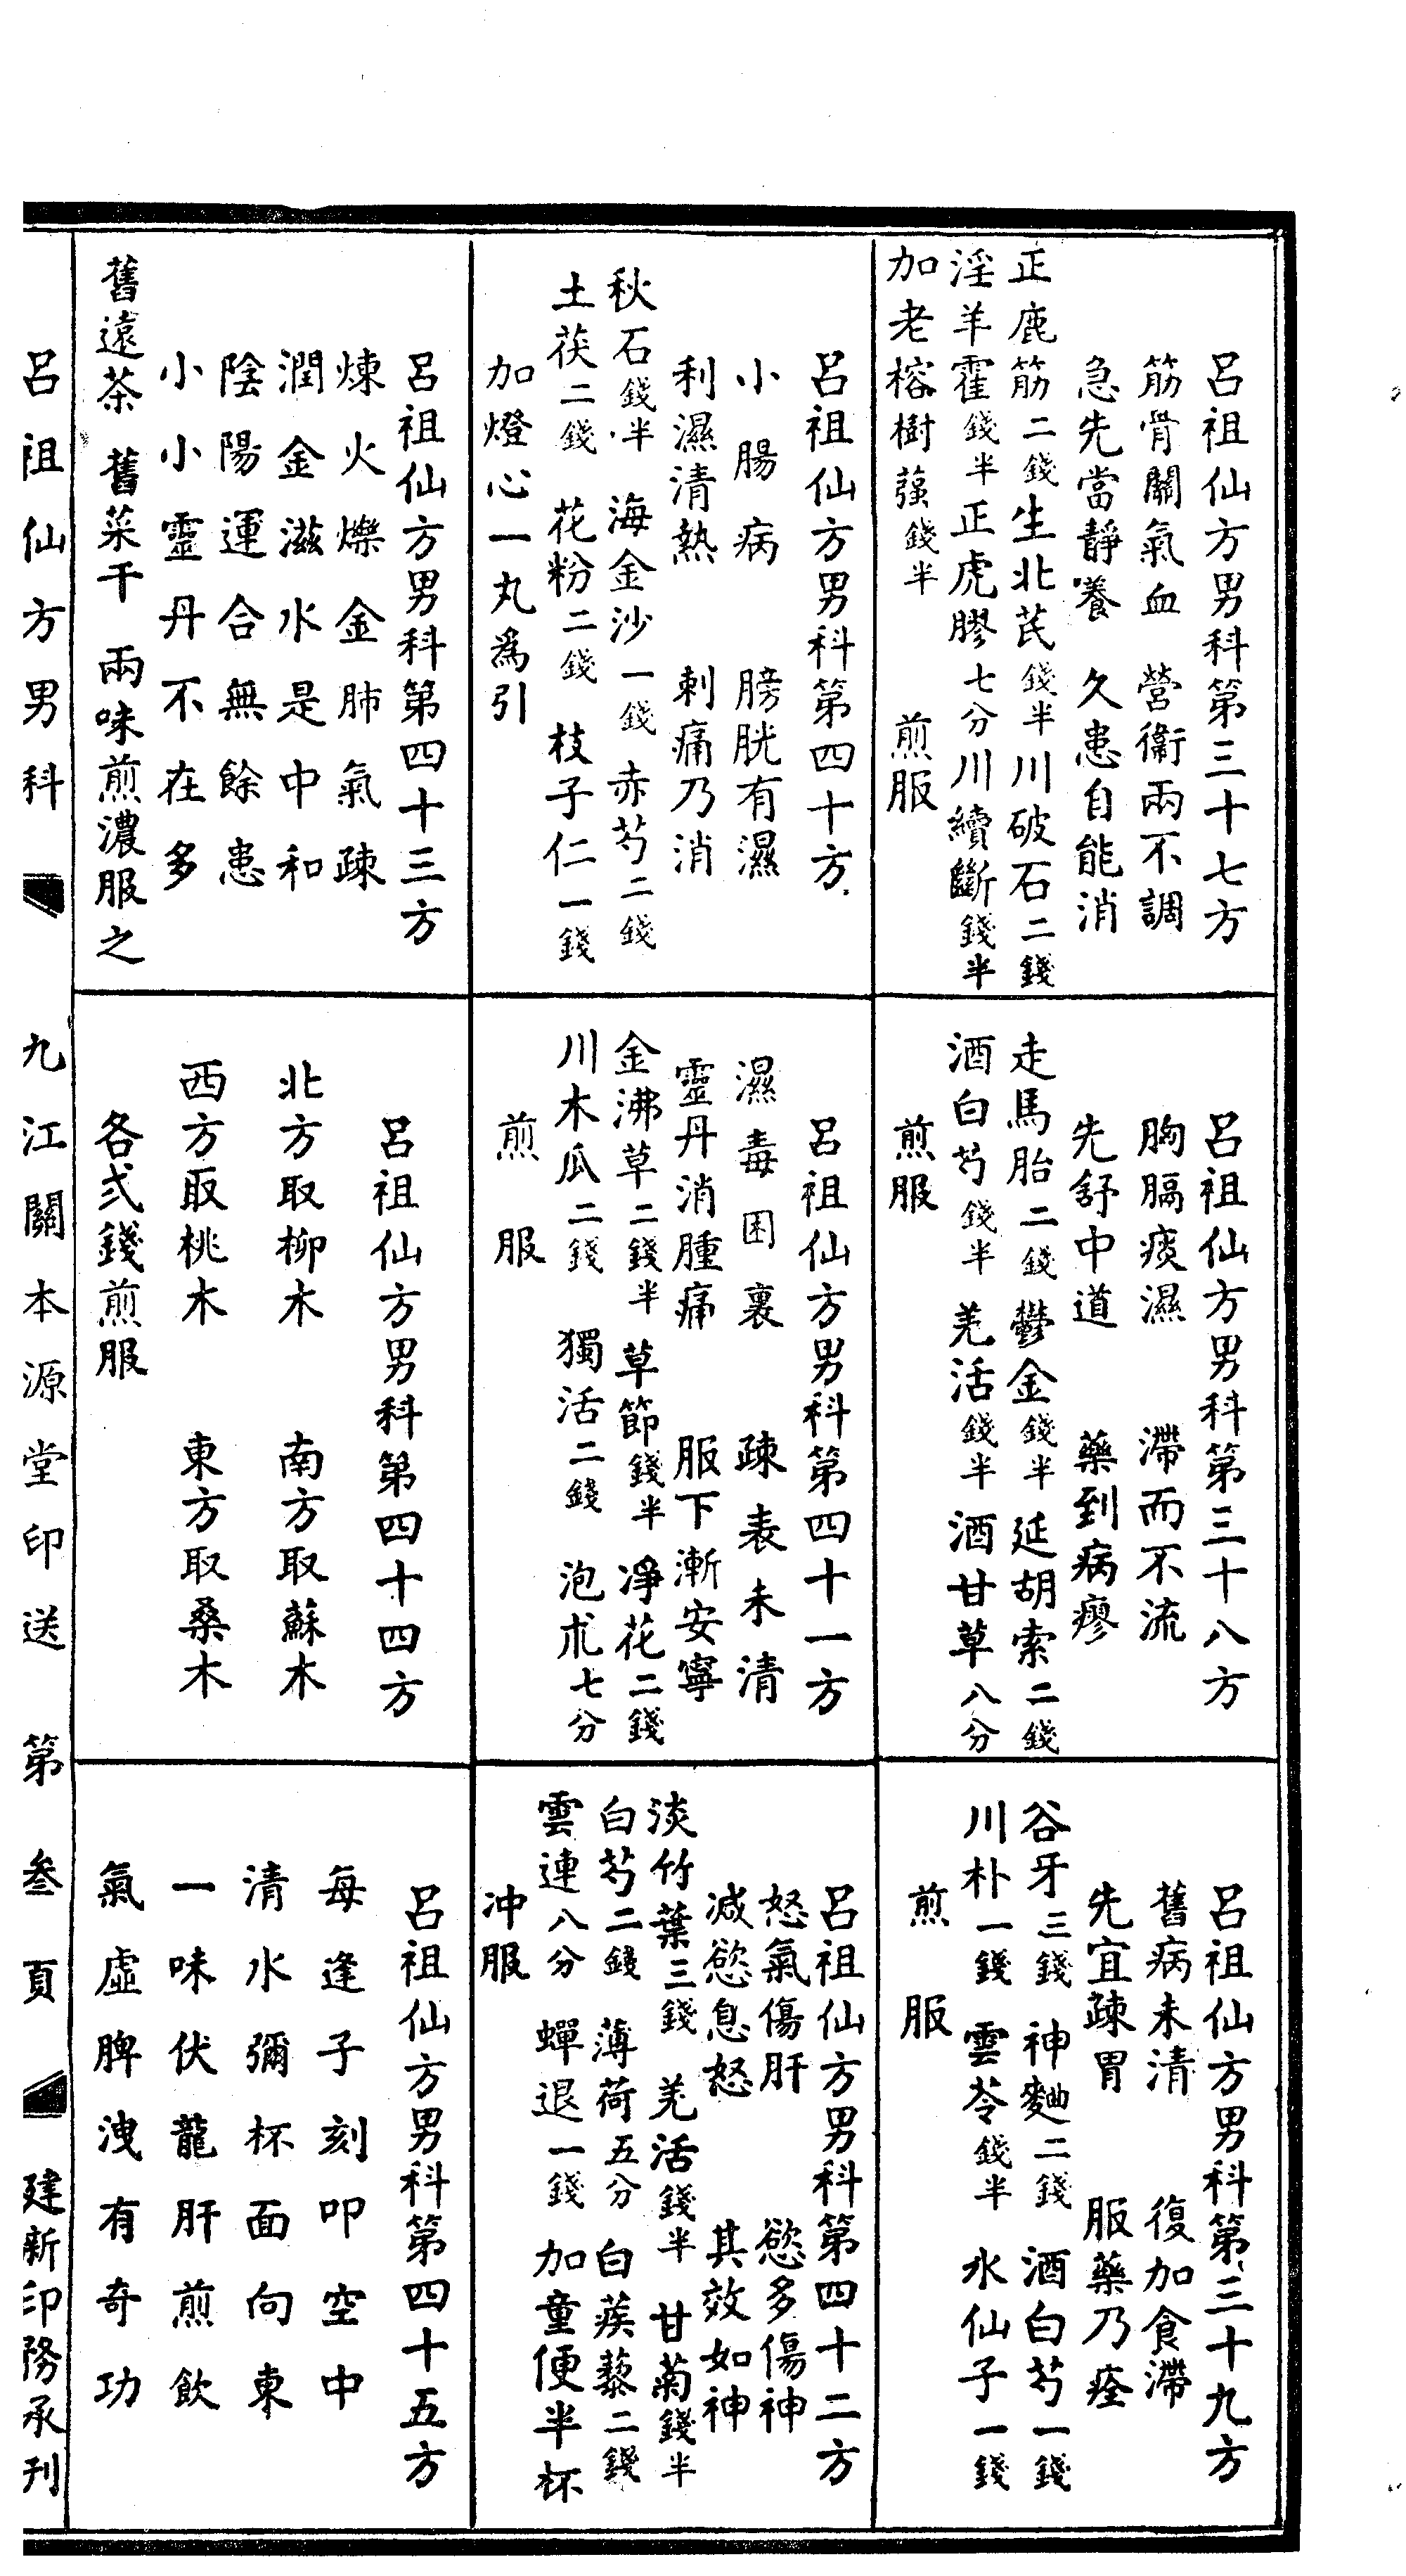 呂祖仙方男科第三十七方
筋骨關氣血　營衛兩不調
急先當靜養　久患自能消
正鹿筋二錢生北芪錢半川破石二錢
淫羊霍錢半正虎膠七分川續斷錢半
加老榕樹蕦錢半　煎服
呂祖仙方男科第三十八方
胸膈痰濕　滯而不流
先舒中道　藥到病瘳
走馬胎二錢鬱金錢半延胡索二錢
酒白芍錢半羌活錢半酒甘草八分
煎服
呂祖仙方男科第三十九方
舊病未清　復加食滯
先宜疎胃　服藥乃痊
谷牙三錢　神麯二錢　酒白芍一錢
川朴一錢　雲苓錢半　水仙子一錢
煎服
呂祖仙方男科第四十方
小腸病　膀胱有濕
利濕清熱　刺痛乃消
秋石錢半　海金沙一錢　赤芍二錢
土茯二錢　花粉二錢　枝子仁一錢
加燈心一丸為引
呂祖仙方男科第四十一方
濕毒困裏　疎表未清
靈丹消腫痛　服下漸安寧
金沸草二錢半　草節錢半　淨花二錢
川木瓜二錢　獨活二錢　泡朮七分
煎服
呂祖仙方男科第四十二方
怒氣傷肝　慾多傷神
減慾息怒　其效如神
淡竹葉三錢　羌活錢半　甘菊錢半
白芍二錢　薄荷五分　白蒺藜二錢
雲連八分　蟬退一錢　加童便半杯
冲服
呂祖仙方男科第四十三方
煉火爍金肺氣疎
潤金滋水是中和
陰陽運合無餘患
小小靈丹不在多
舊遠茶　舊菜干　兩味煎濃服之
呂祖仙方男科第四十四方
北方取柳木　南方取蘇木
西方取桃木　東方取桑木
各弍錢煎服
呂祖仙方男科第四十五方
每逢子刻叩空中
清水彌杯面向東
一味伏龍肝煎飲
氣虛脾洩有奇功
呂祖仙方男科　九江關本源堂印送　第叁頁　建新印務承刊